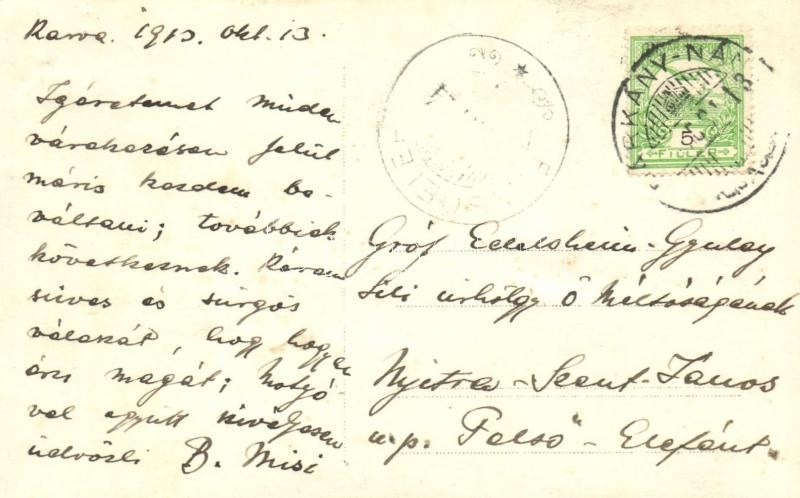 Karva. 1913. Okt. 13.
Igéretemet minden
várakozáson felül
máris kezdem be-
váltani; továbbiak
következnek. Kérem
szives és sürgős
válaszát, hogy hogyan
érzi magát;
val együtt szivélyesen
üdvözli B. Misi
KÁNY-NÁ
5
FILLÉR
Gróf Edelsheim-Gyulay
Lili úrhölgy ő Méltóságának
Nyitra-Szent-János
u.p. Felső-Elefánt.